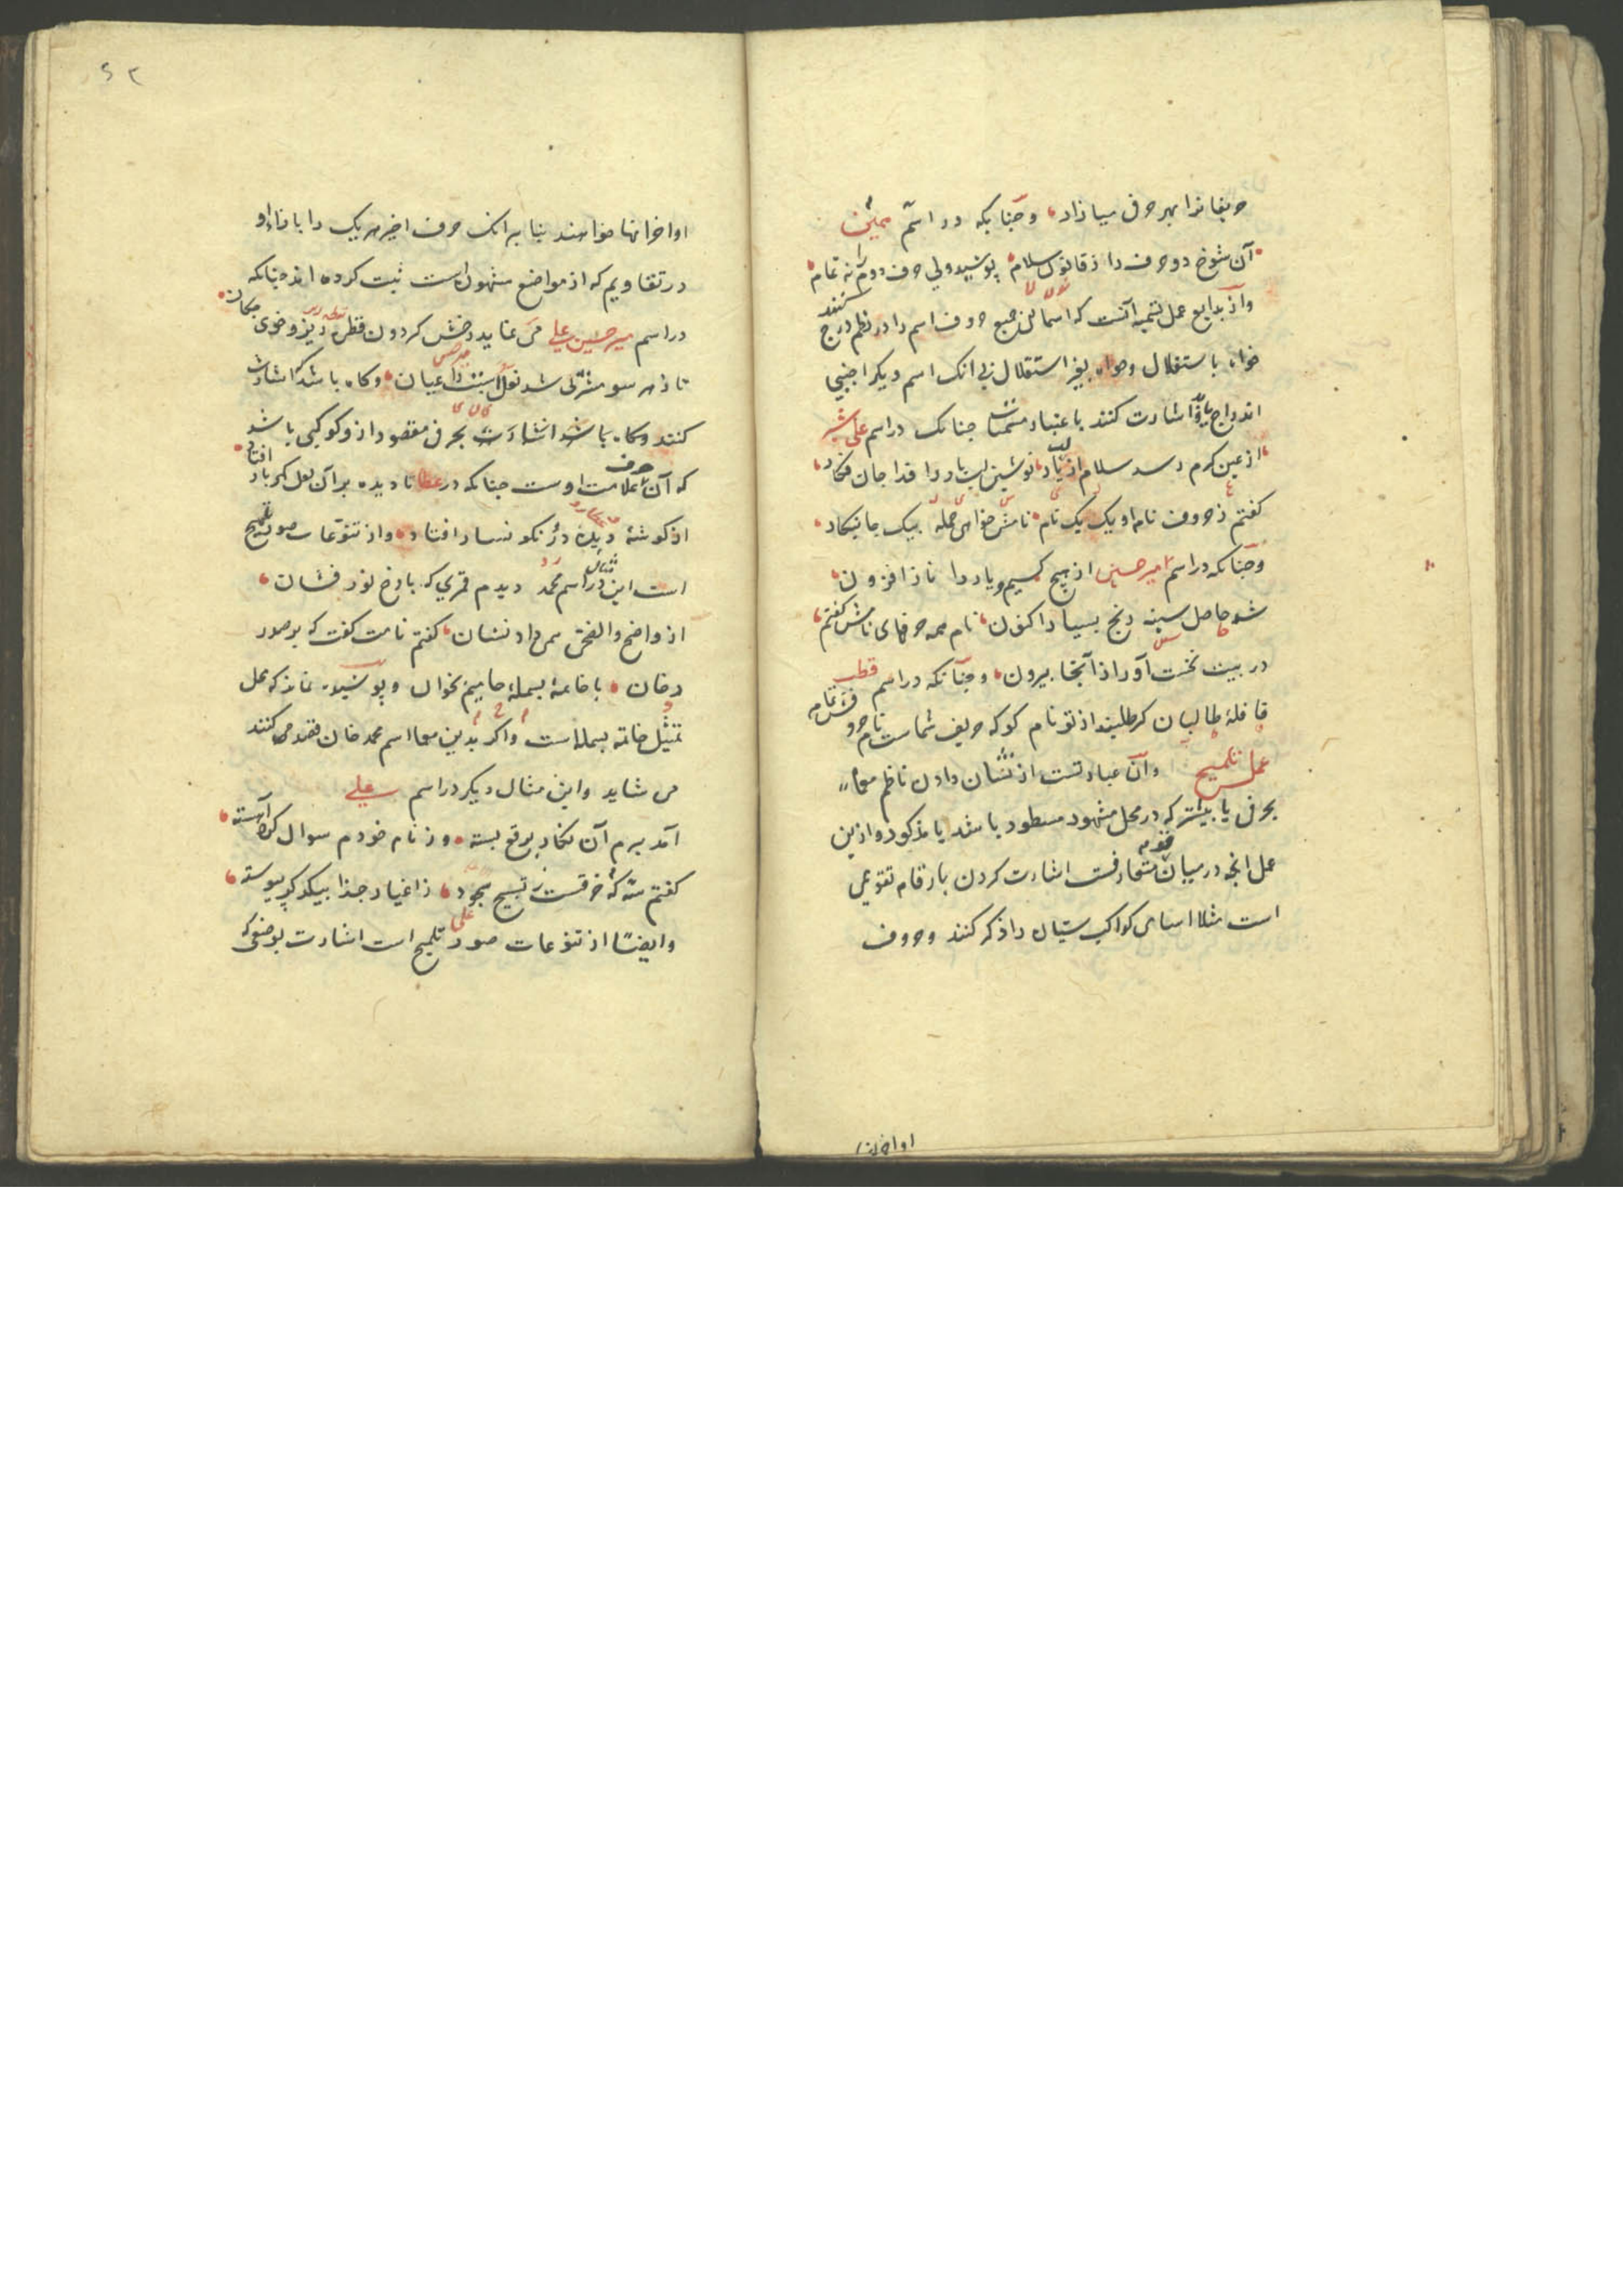 حریفانرا بهر حرفی میازاد و چنانکه در اسم
آن شوخ دو حرف را ز قانون سلام پوشید ولی حرف دوم را نه تمام
و از بدایع عمل تسمیه آنست که اسمای جمیع حروف اسم را در نظم درج کنند
خواه باستقلال وخواه بغیر استقلال بی انک اسم دیکر اجنبی
اندراج یابد و اشارت کنند باعتبار مسمیات چنانک در اسم علی شیر
از عین کرم رسد سلام از لب یار نوشین لب یار را فدا جان فکار
کفتم ز حروف نام او یک یک نام نامش خوانی جمله بیک جا نکار
و چنانکه در اسم امیر حسین از هیچ کسیم و یار را ناز افزون
شد حاصل سینه رنج بسیار اکنون نام همه حرفهای نامش کفتم
در بیت نخست آور از آنجا بیرون و چنانکه در اسم قطب
قافلهٔ طالبان کر طلبند از تو نام کو که حریف شماست نام حرو فش تمام
عمل تلمیح و آن عبارتست از نشان دادن ناظم معما
بحرفی یا بیشتر که در محل مشهور مسطور باشد یا مذکور و ازین
عمل انچه در میان قوم متعارفست اشارت کردن بارقام تقویمی
است مثلا اسامی کواکب سیّار را ذکر کنند وحروف
اواخر انها
اواخر انها خواهند بنا بر انک حرف اخیر هر یک را بازاء او
در تقاویم که از مواضع مشهوره است ثبت کرده اند چنانکه
در اسم میر حسین علی می نماید رخش کردون قطره ریز و خوی چکان
تا ز هر سو مشتری شد نعل اسبت را عیان وکاه باشد کا شارت
کنند وکاه باشد اشارت بحرفی مقصود از و کوکبی باشد
که آن حرف علامت اوست چنانکه در عطا تا دیده بر آن لعل کهربار افتاد
از کوشهٔ دیده دُر نکونسار افتاد و از تنوعات صور تلمیح
است این مثال در اسم محمد دیدم قمری که با رخ نور فشان
از واضح والضحی همی داد نشان کفتم نامت کفت که بر صدر
دخان با خاتمهٔ بسمله حامیم بخوان و پوشیده نماند که عمل
تمثیل خاتمه بسمله است و اکر بدین معما اسم محمد خان قصد می کنند
می شاید و این مثال دیکر در اسم علی
آمد برم آن نکار برقع بسته وز نام خودم سوال کرد آهسته
وایضًا از تنوعات صور تلمیح است اشارت بوضوء که